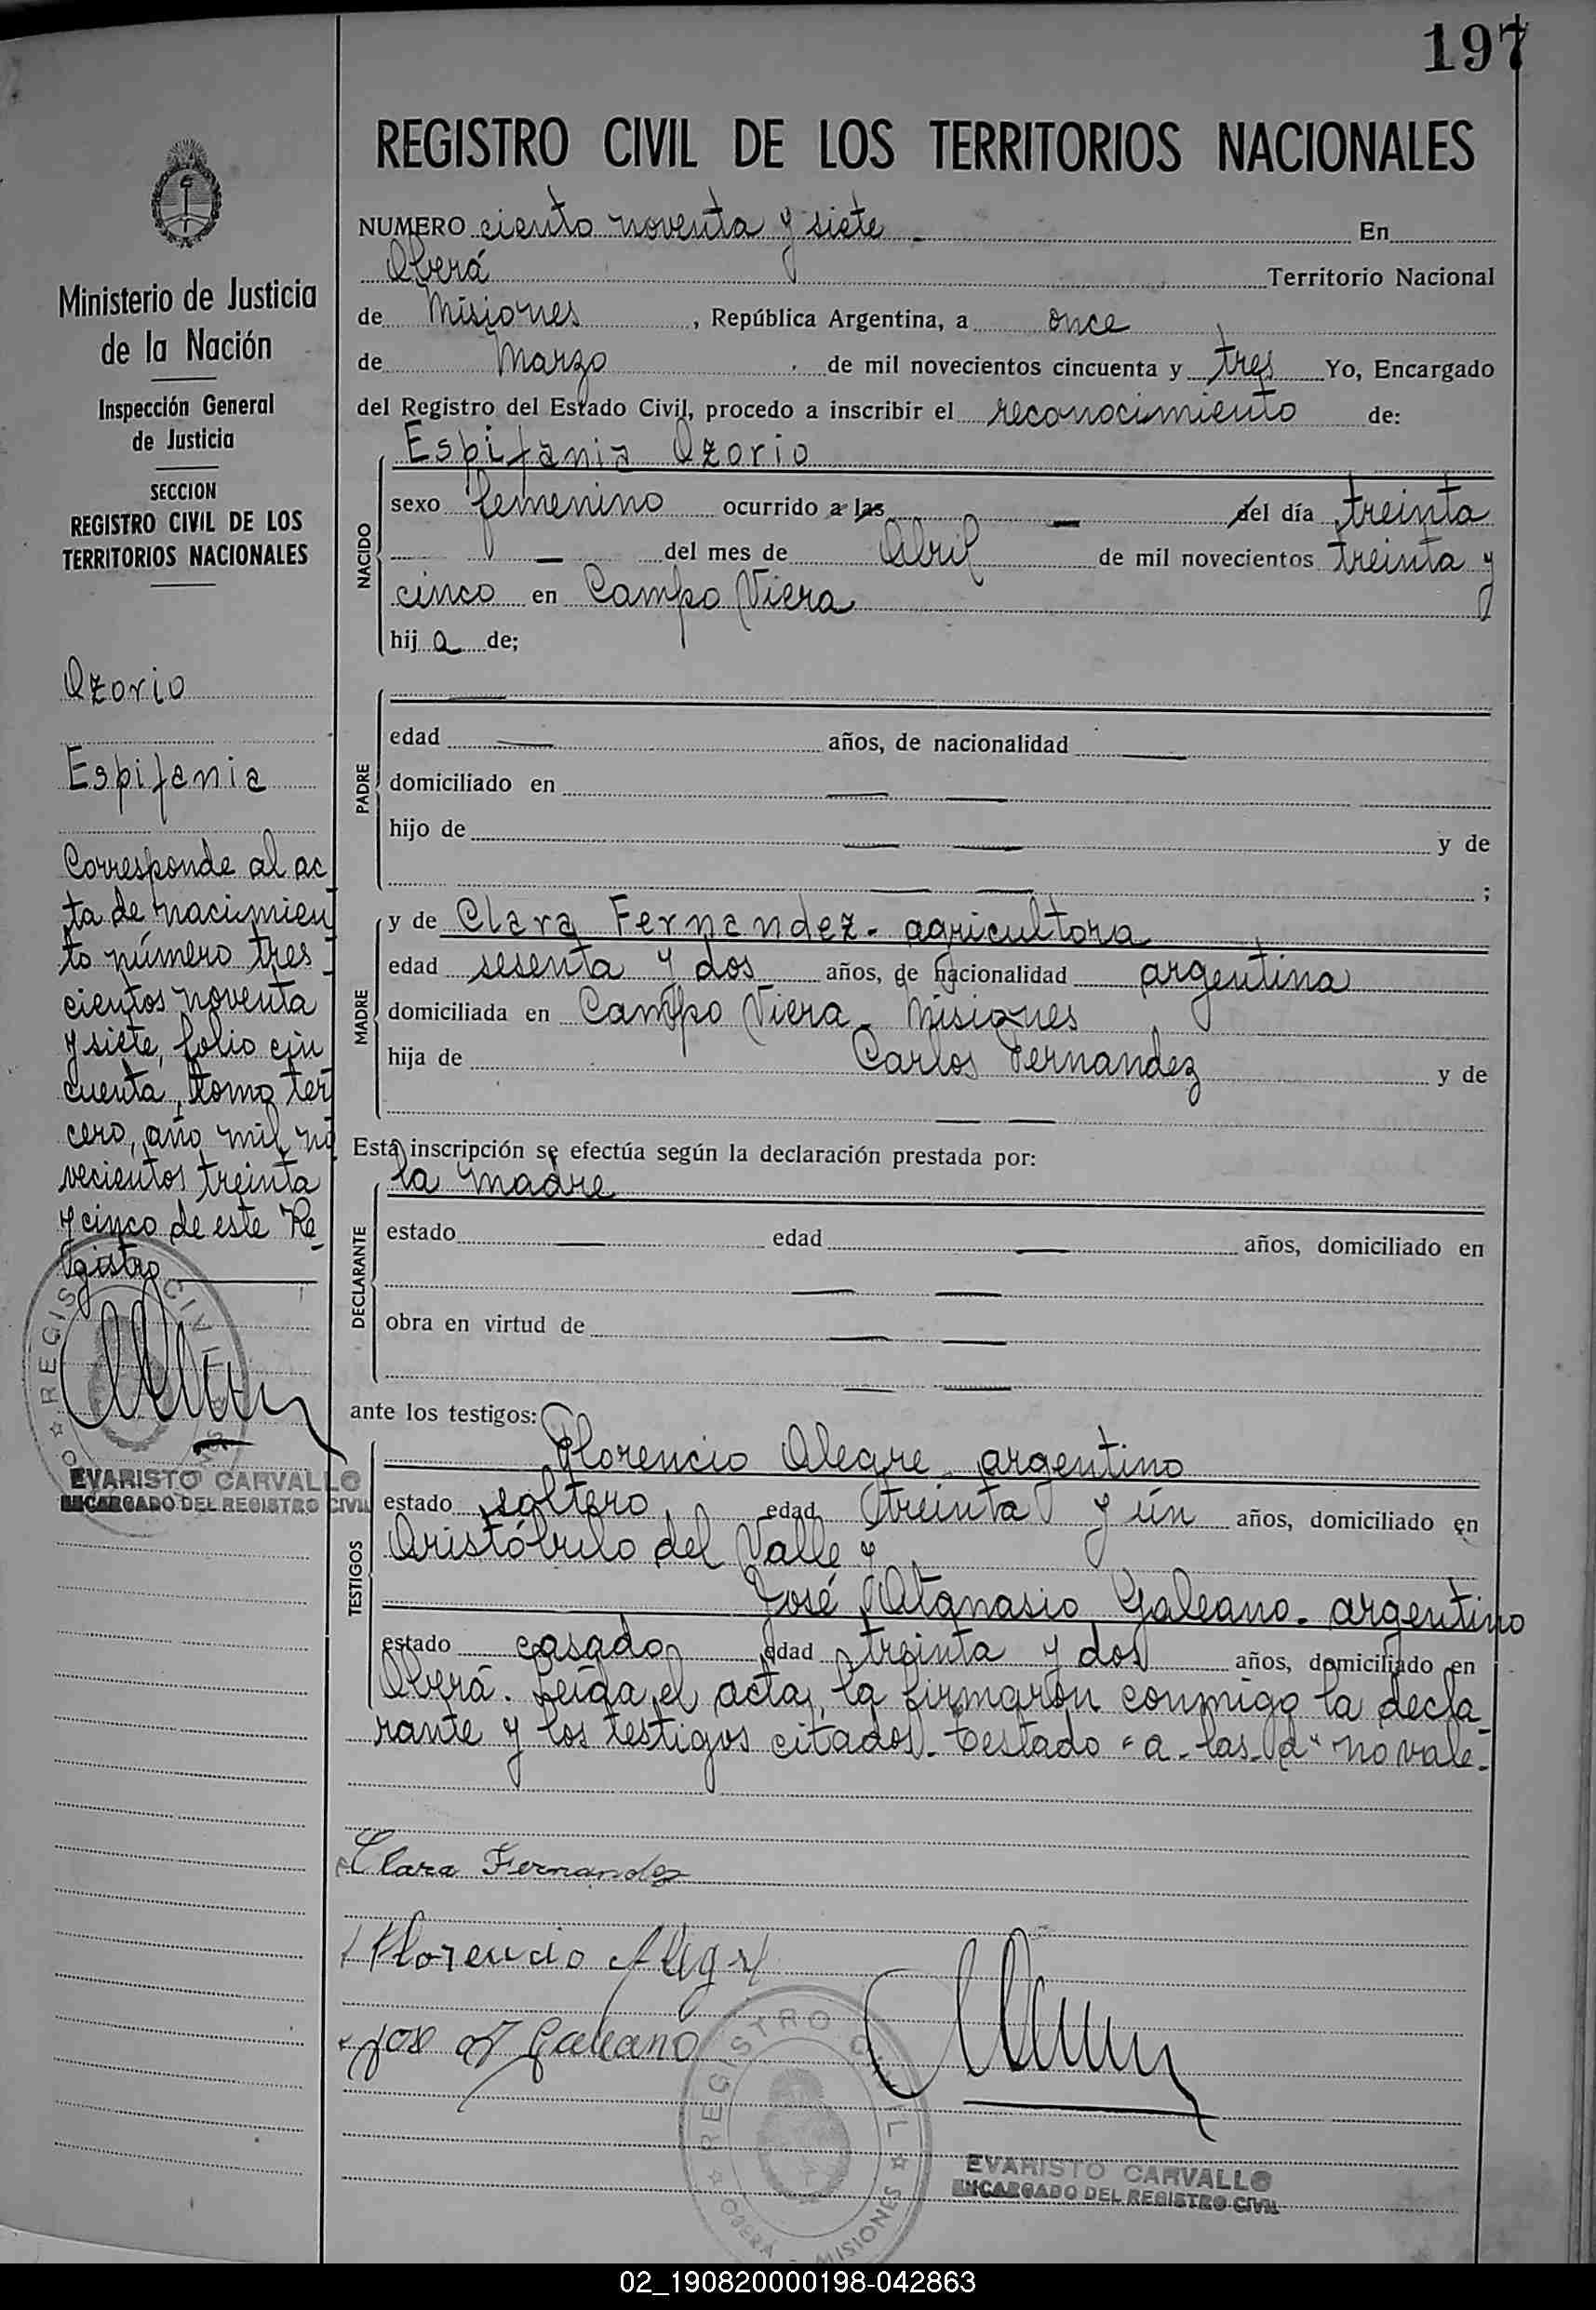 197
REGISTRO CIVIL DE LOS TERRITORIOS NACIONALES
Ministerio de Justicia
de la Nación
Inspección General
de Justicia
SECCION
REGISTRO CIVIL DE LOS
TERRITORIOS NACIONALES
Ozorio
Espifania
Corresponde al ac
ta de nacimien
to número tres
cientos noventa
y siete, folio cin
cuenta, tomo ter
cero, año mil no
vecientos treinta
y cinco de este Re_
gistro
REGISTRO CIVIL
EVARISTO CARVALLO
ENCARGADO DEL REGISTRO CIVIL
NUMERO ciento noventa y siete - En
Oberá Territorio Nacional
de Misiones, República Argentina, a once
de Marzo de mil novecientos cincuenta y tres Yo, Encargado
del Registro del Estado Civil, procedo a inscribir el reconocimiento de:
Espifania Ozorio
NACIDO
sexo femenino ocurrido a las — del día treinta
— del mes de Abril de mil novecientos treinta y
cinco en Campo Viera
hij a de;
PADRE
—
edad — años, de nacionalidad —
domiciliado en — —
hijo de — — y de
— — ;
MADRE
y de Clara Fernandez - agricultora
edad sesenta y dos años, de nacionalidad argentina
domiciliada en Campo Viera - Misiones
hija de Carlos Fernandez y de
— —
Esta inscripción se efectúa según la declaración prestada por:
la madre
DECLARANTE
estado — edad — años, domiciliado en
— —
obra en virtud de — —
— —
ante los testigos:
TESTIGOS
Florencio Alegre - argentino
estado soltero edad treinta y ún años, domiciliado en
Aristóbulo del Valle y
José Atanasio Galeano - argentino
estado casado edad treinta y dos años, domiciliado en
Oberá. Leída el acta, la firmaron conmigo la decla_
rante y los testigos citados - Testado "a - las - d" no vale -
Clara Fernandez
Florencio Alegre
Jose A Galeano
REGISTRO CIVIL
OBERA - MISIONES
EVARISTO CARVALLO
ENCARGADO DEL REGISTRO CIVIL
02_190820000198-042863